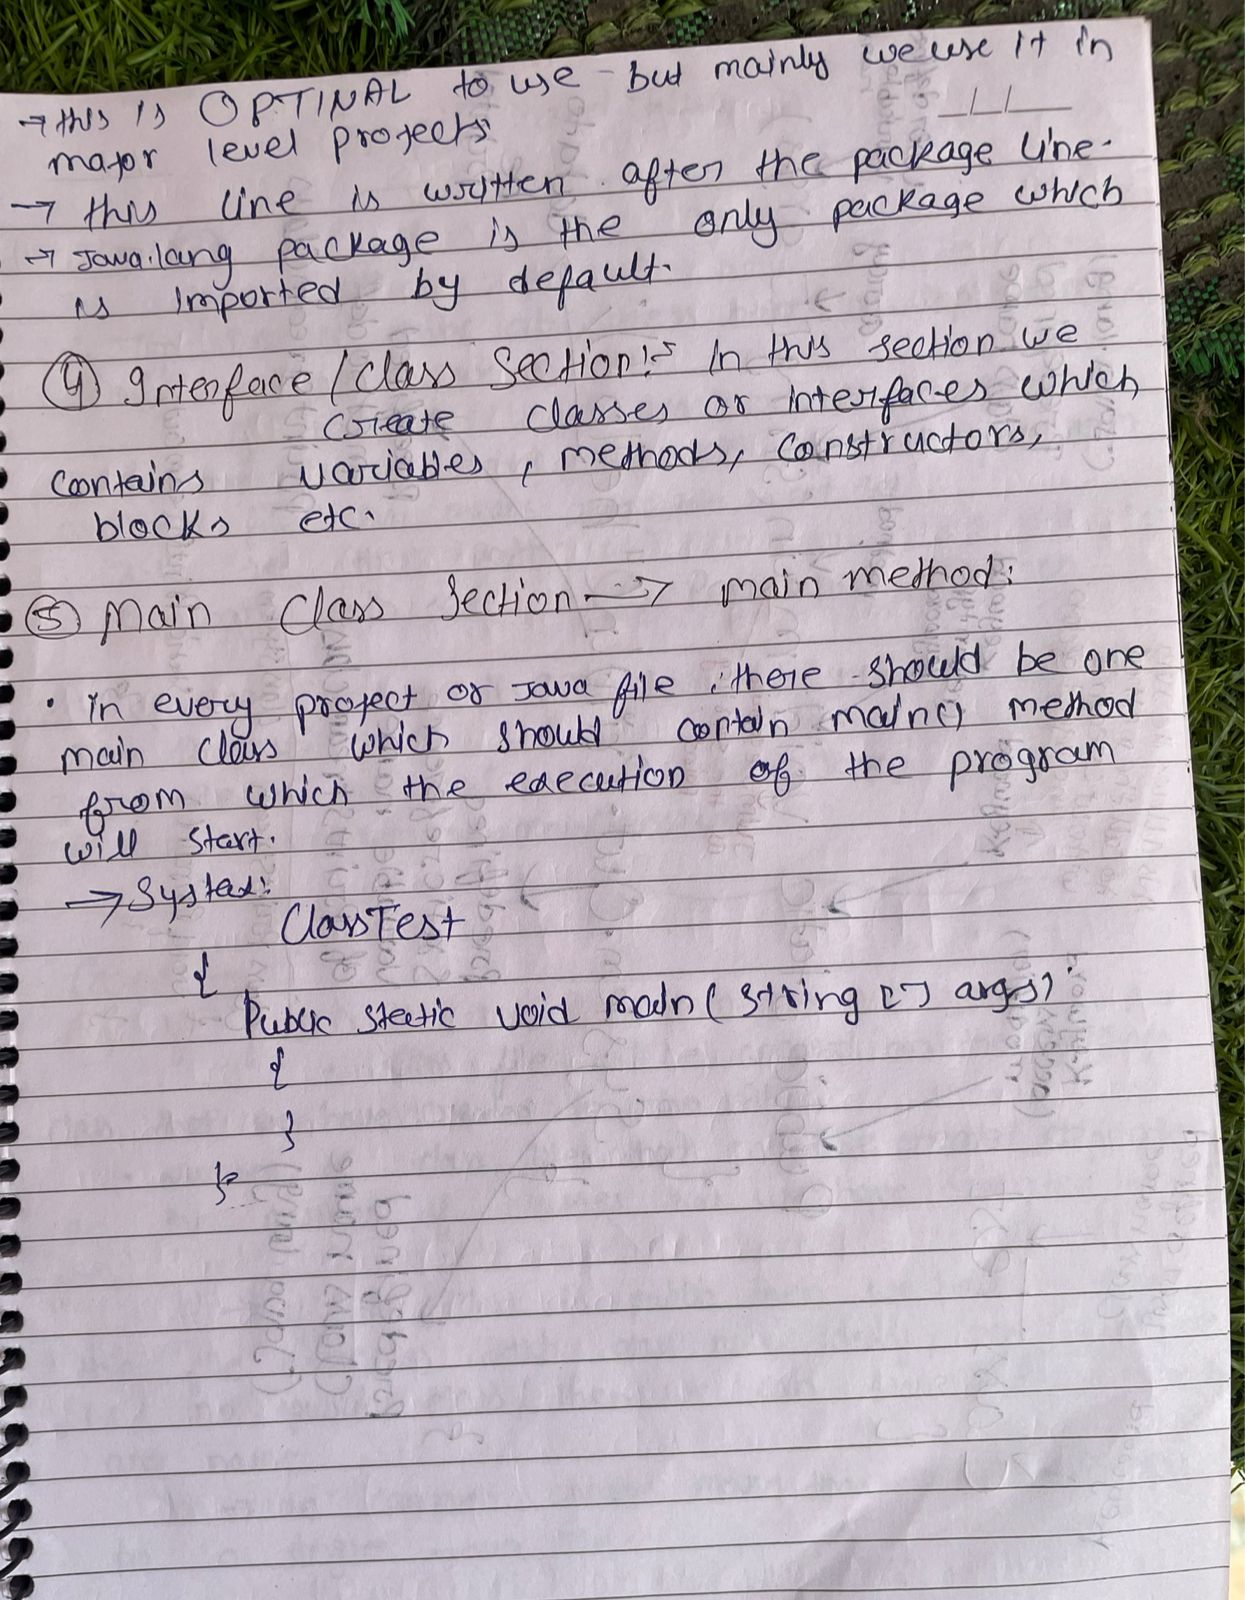 → this is OPTINAL to use - but mainly we use it in
major level projects
→ this line is written after the package line.
→ Java.lang package is the only package which
is imported by default.
④ Interface / Class Section:- In this section we
create classes or interfaces which
contains variables, methods, constructors,
blocks etc.
⑤ Main Class Section → main method:
• in every project or Java file, there should be one
main class which should contain main() method
from which the execution of the program
will start.
→ Systax:
Class Test
{
Public static void main( string [] args)
{
}
}